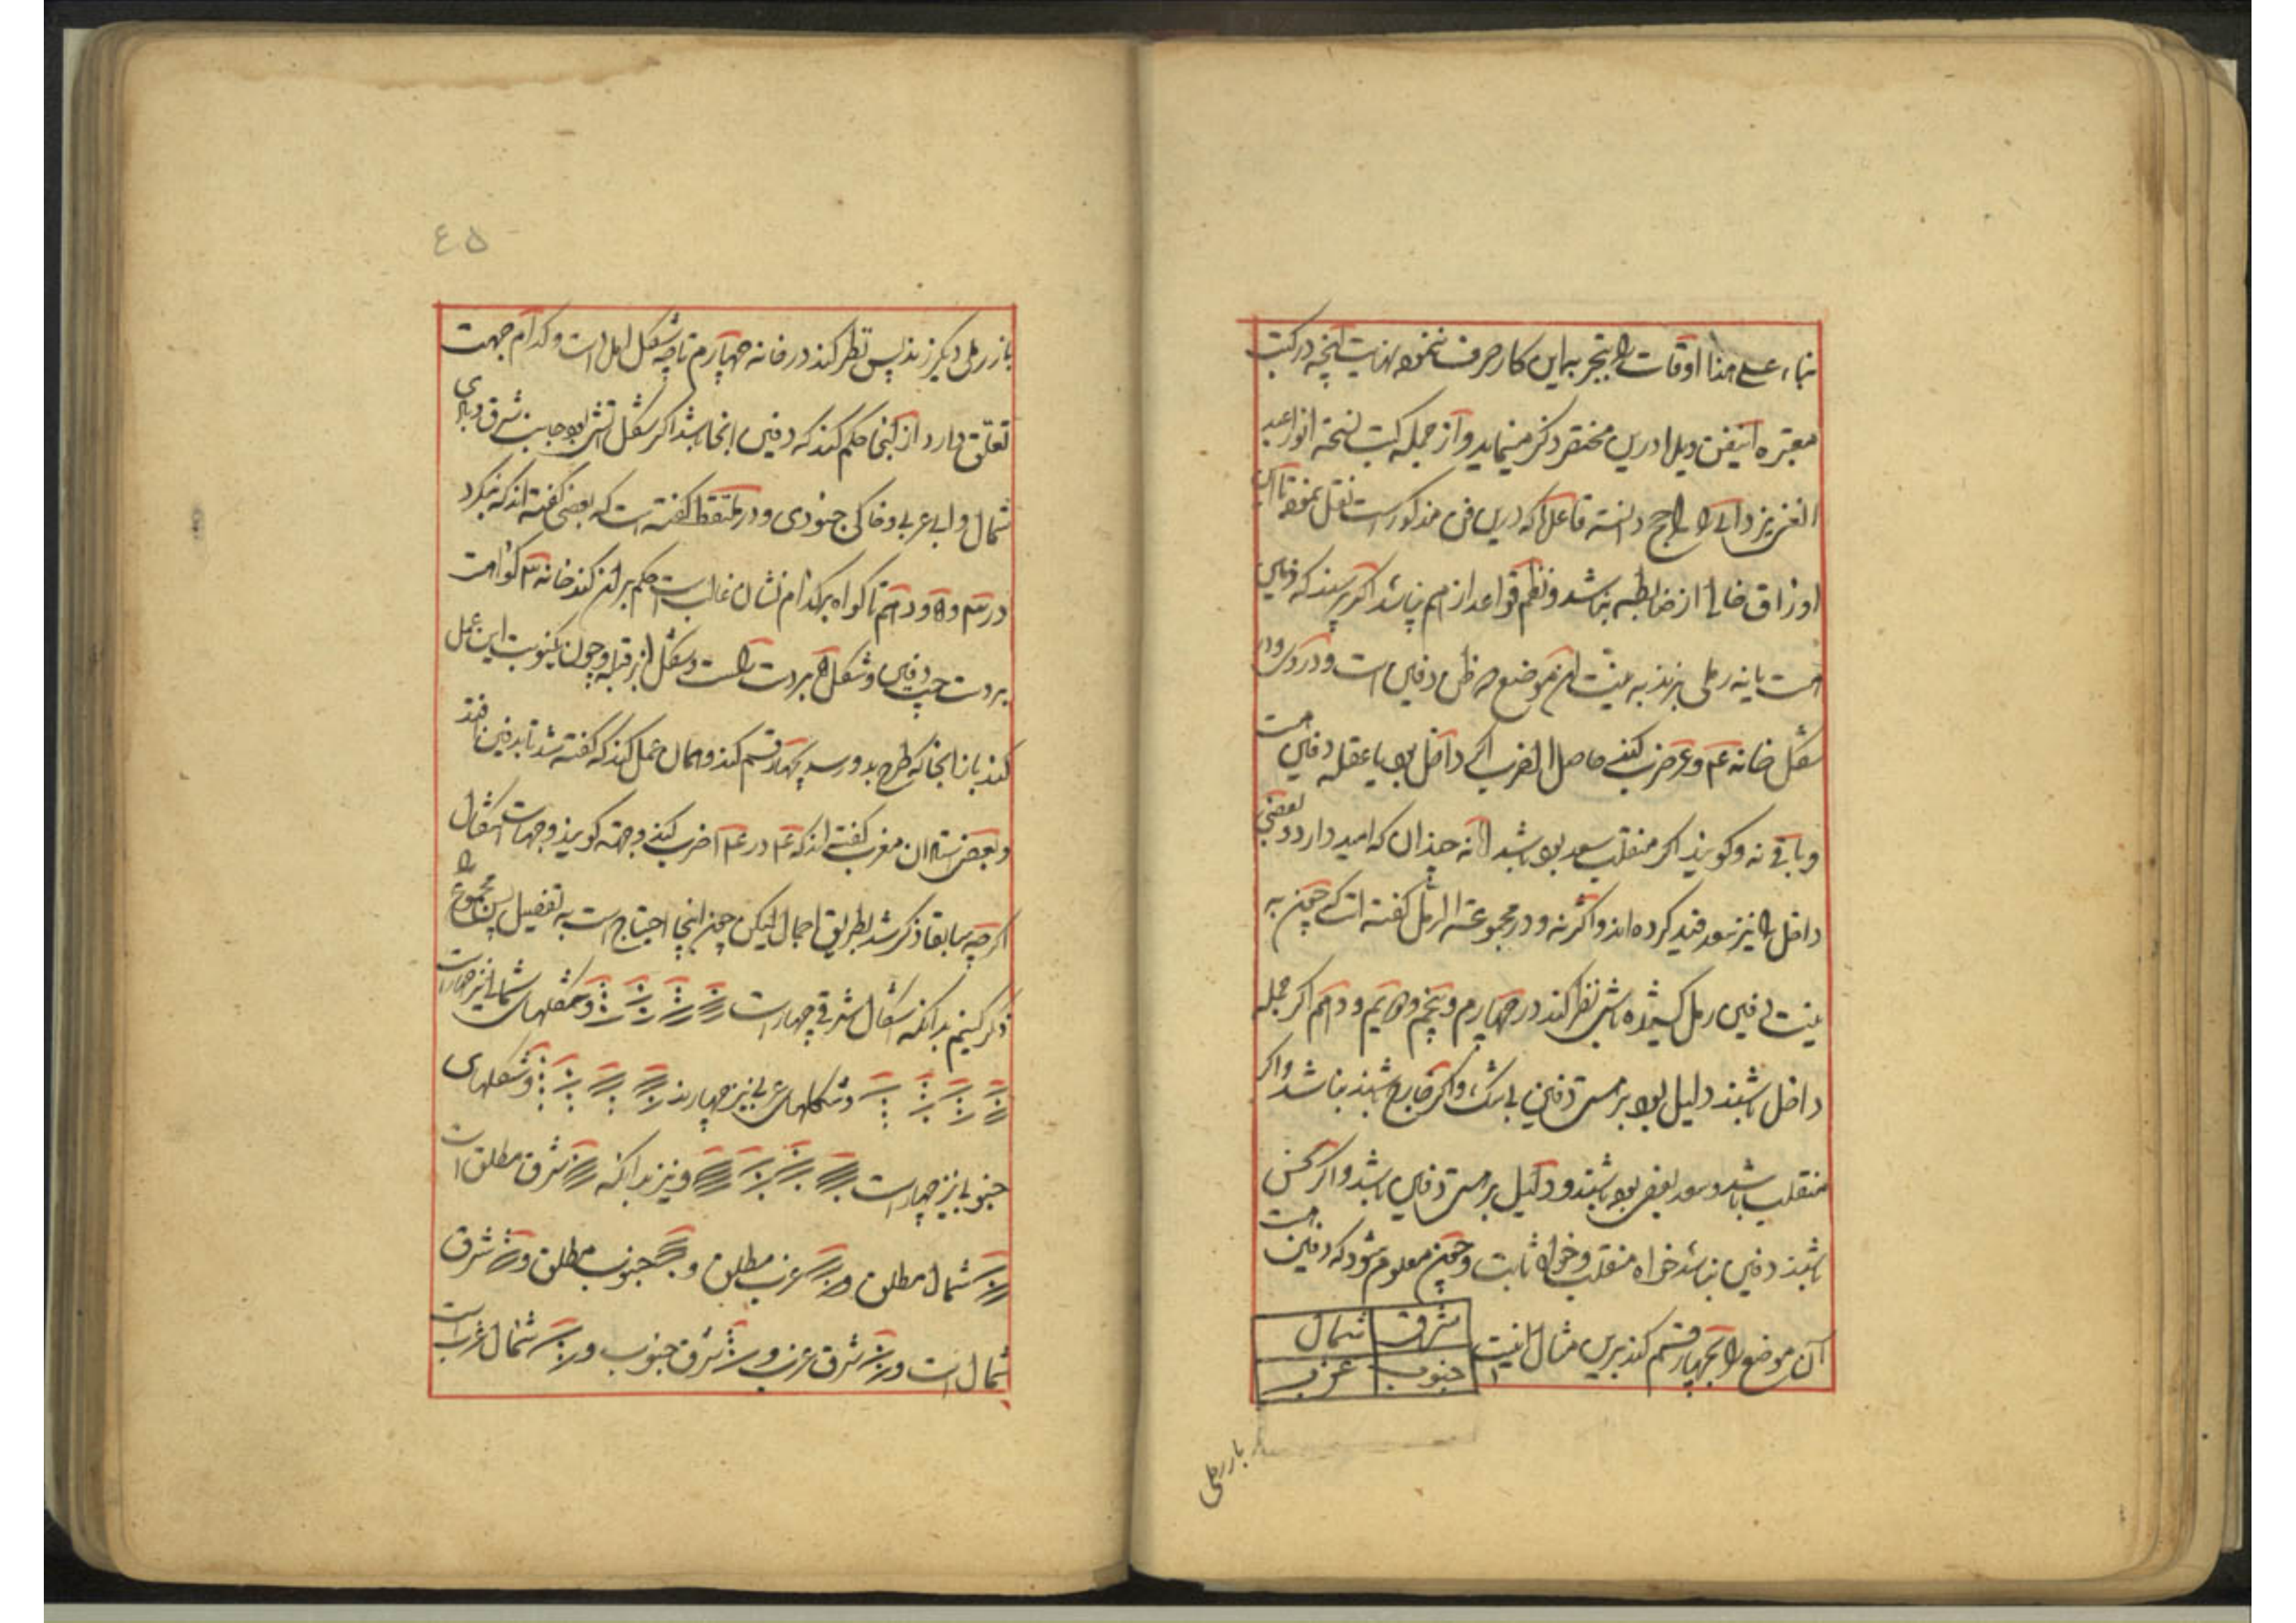 بناء علی هذا اوقات را بتجربه این کار صرف نموده نهایت آنچه در کتب
معتبره این فن دیده ام درین مختصر ذکر مینماید و از جمله کتب نسخه انوار عبد
العزیز دانی را راجح دانسته قاعده که درین فن مذکور است نقل نموده تا این
اوراق خالی از ضابطه نباشد و نظم قواعد از هم نپاشد اگر پرسند که دفین
است یا نه رملی بزند به نیت آن موضع که ظن دفین است و در
شکل خانه و ضرب کنند حاصل الضرب اگر داخل بود یا عقله دفین است
و باقی نه و گویند اگر منقلب سعد بود باشد اما نه چندان که امید دارد و بعضی
داخل را نیز سعد قید کرده اند و اکثر نه و در مجموعة الرمل گفته است که چون به
نیت دفین رمل کشیده باشی نظر کند در چهارم و پنجم و هشتم و دهم اگر جمله
داخل باشند دلیل بود بر هستی دفین بی شک و اگر خارج باشند نباشد و اگر
منقلب باشد و سعد بعضی بود باشند و دلیل بر هستی دفین باشد و اگر نحس
باشند دفین نباشد خواه منقلب و خواه ثابت و چون معلوم شود که دفین است
آن موضع را بچهار قسم کند برین مثال اینست
شرق شمال
جنوب غرب
باز رملی
۴۵
باز رملی دیگر زند پس نظر کند در خانه چهارم تا چه شکل آمده است و کدام جهت
تعلق دارد از آنجا حکم کند که دفین آنجا باشد اگر شکل آتشی بود جانب شرق و بادی
شمال و آبی غربی و خاکی جنوبی و در ملتقط گفته است که بعضی گفته اند که بنگرد
در و و دهم تا گواه بر کدام نشان غالب است حکم بر آن کند خانه گواه است
بر دست چپ دفین و شکل بر دست راست و شکل از قبله و چون یکنوبت این عمل
کند باز آنجا که طرح بدو رسد بچهار قسم کند و همان عمل کند که گفته شد تا بدفین افتد
و بعضی استادان مغرب گفته اند که در ضرب کنند و جهت گویند و جهات اشکال
اگر چه سابقا ذکر شد بطریق اجمال لیکن چون اینجا احتیاج است به تفصیل پس مجموع را
ذکر کنیم بدانکه اشکال شرقی چهار است و شکلهای شمالی نیز چهار است
و شکلهای غربی نیز چهارند و شکلهای
جنوبی نیز چهار است و نیز بدانکه شرق مطلق است
شمال مطلق و غرب مطلق و جنوب مطلق و شرق
شمال است و شرق غرب و شرق جنوب و شمال غرب است